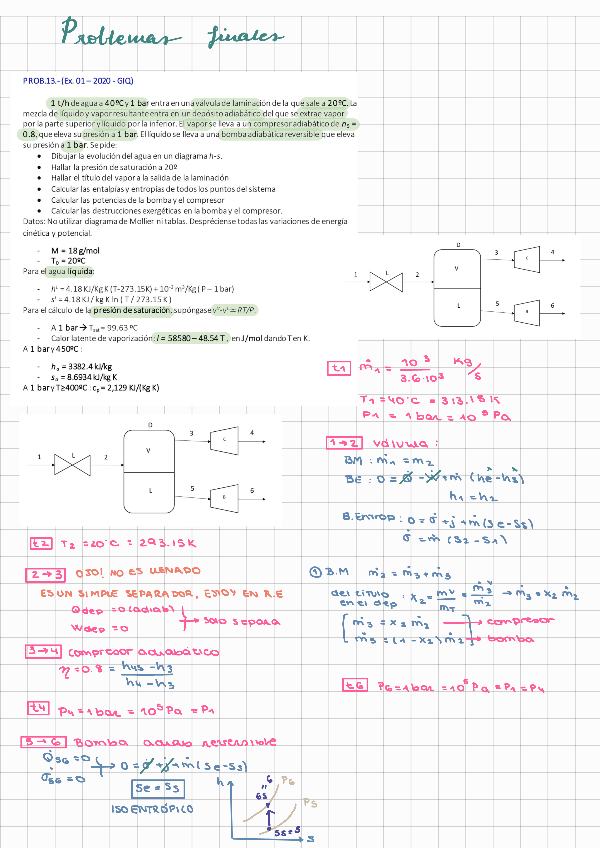 Problemas finales
PROB.13.-(Ex. 01 – 2020 - GIQ)
1 t/h de agua a 40ºC y 1 bar entra en una válvula de laminación de la que sale a 20ºC. La
mezcla de líquido y vapor resultante entra en un depósito adiabático del que se extrae vapor
por la parte superior y líquido por la inferior. El vapor se lleva a un compresor adiabático de ηs =
0.8, que eleva su presión a 1 bar. El líquido se lleva a una bomba adiabática reversible que eleva
su presión a 1 bar. Se pide:
• Dibujar la evolución del agua en un diagrama h-s.
• Hallar la presión de saturación a 20º
• Hallar el título del vapor a la salida de la laminación
• Calcular las entalpías y entropías de todos los puntos del sistema
• Calcular las potencias de la bomba y el compresor
• Calcular las destrucciones exergéticas en la bomba y el compresor.
Datos: No utilizar diagrama de Mollier ni tablas. Despréciense todas las variaciones de energía
cinética y potencial.
- M = 18 g/mol
- T0 = 20ºC
Para el agua líquida:
- hL = 4.18 KJ/Kg K (T-273.15K) + 10-3 m3/Kg ( P – 1 bar)
- sL = 4.18 KJ / kg K ln ( T / 273.15 K )
Para el cálculo de la presión de saturación, supóngase vV-vL ≃ RT/P.
- A 1 bar → Tsat = 99.63 ºC
- Calor latente de vaporización: l = 58580 – 48.54 T , en J/mol dando T en K.
A 1 bar y 450ºC :
- h = 3382.4 kJ/kg
- s = 8.6934 kJ/kg K
A 1 bar y T≥400ºC : cp = 2,129 KJ/(Kg K)
D
3
4
C
1
2
V
L
5
6
L
B
t1 ṁ1 = 10³ / 3.6·10³ Kg/s
T1 = 40°C = 313.15 K
P1 = 1 bar = 10⁵ Pa
1→2 válvula :
BM : ṁ1 = ṁ2
BE : 0 = Q̇ - Ẇ + ṁ (he - hs)
h1 = h2
B. Entrop : 0 = σ̇ + j + ṁ (se - ss)
σ̇ = ṁ (s2 - s1)
D
3
4
C
1
2
V
L
5
6
L
B
t2 T2 = 20°C = 293.15K
2→3 OJO! NO ES LLENADO
ES UN SIMPLE SEPARADOR, ESTOY EN R.E
Qdep = 0 (adiab)
Wdep = 0
→ solo separa
① B.M ṁ2 = ṁ3 + ṁ5
del título en el dep : x2 = mV / mT = ṁ3 / ṁ2 → ṁ3 = x2 ṁ2
ṁ3 = x2 ṁ2 → compresor
ṁ5 = (1 - x2) ṁ2 → bomba
3→4 compresor adiabático
η = 0.8 = h4s - h3 / h4 - h3
t4 P4 = 1 bar = 10⁵ Pa = P1
t6 P6 = 1 bar = 10⁵ Pa = P1 = P4
5→6 Bomba adiab reversible
Q̇56 = 0
σ̇56 = 0
→ 0 = σ̇ + j + ṁ (se - ss)
se = ss
ISOENTRÓPICO
h
6
"
6s
P6
P5
5s = 5
s